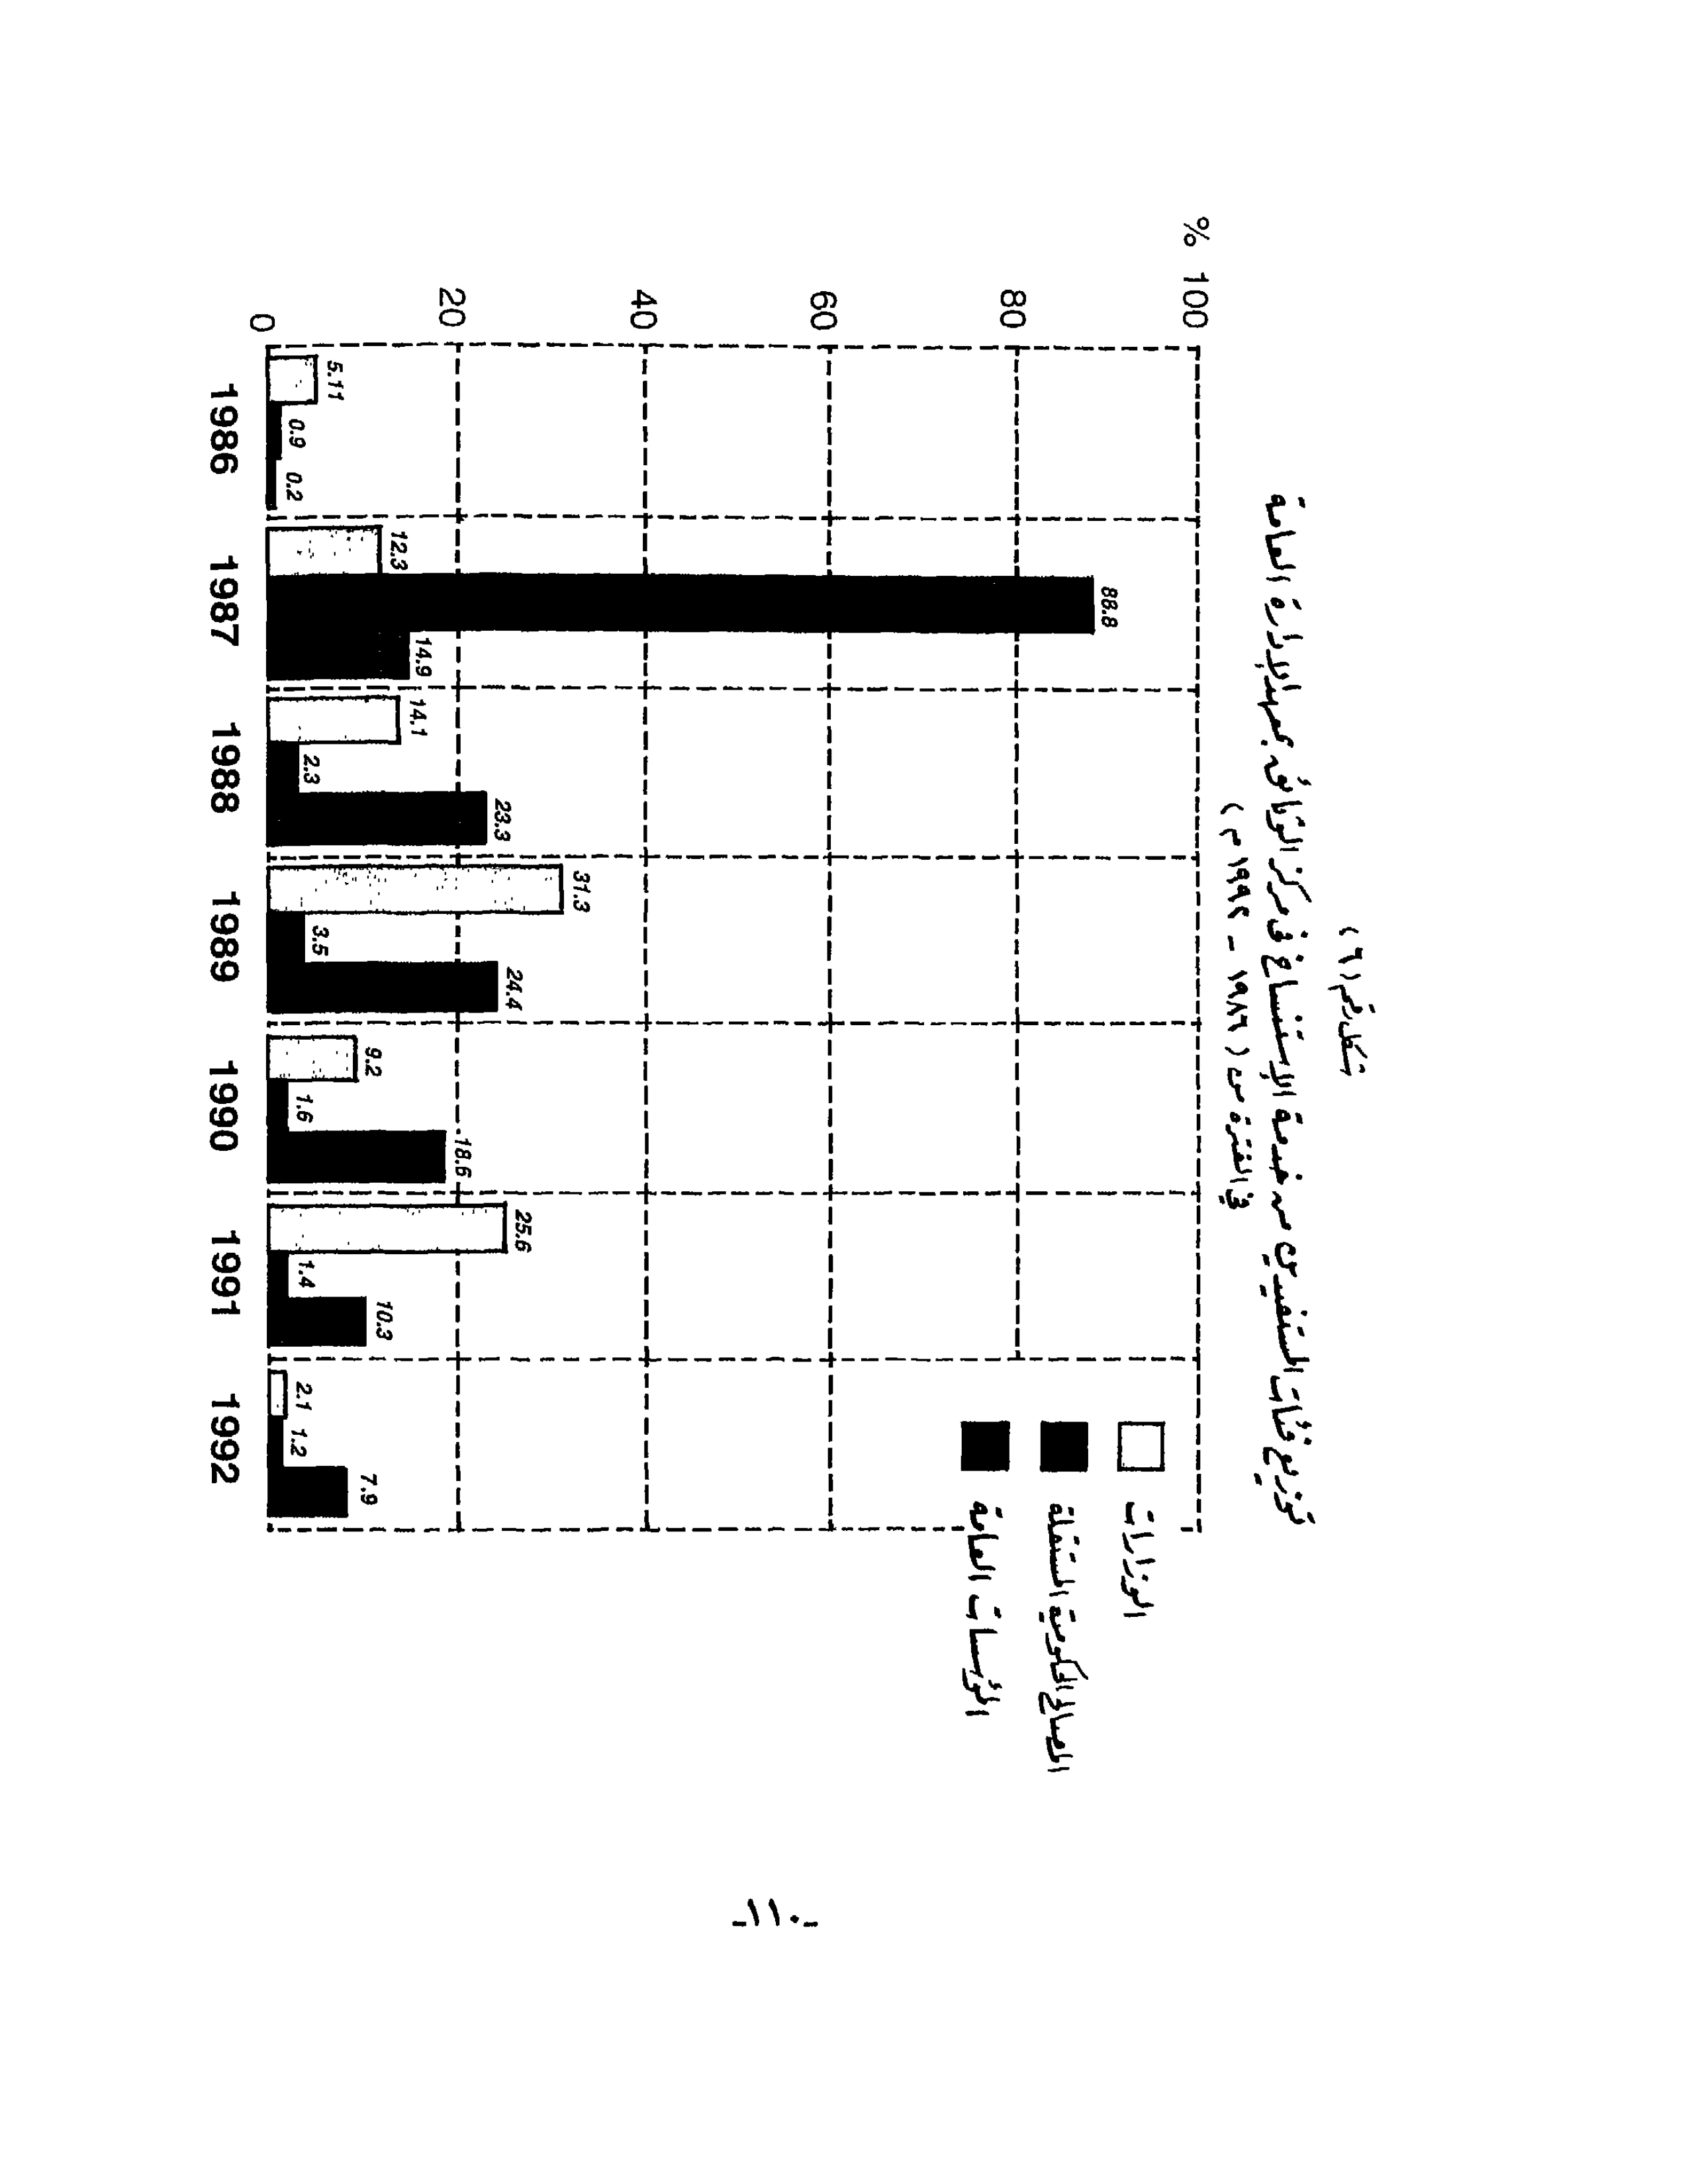 شكل رقم (٦)
توزيع فئات المستفيدين من خدمة الاستنساخ في مركز الوثائق بمعهد الإدارة العامة
في الفترة من (١٩٨٦ - ١٩٩٢م)
% 100
80
60
40
20
0
الوزارات
المصالح الحكومية المستقلة
المؤسسات العامة
5.11 0.9 0.2
12.3 88.8 14.9
14.1 2.3 23.3
31.3 3.5 24.4
9.2 1.6 18.6
25.6 1.4 10.3
2.1 1.2 7.9
1986 1987 1988 1989 1990 1991 1992
-١١٠-